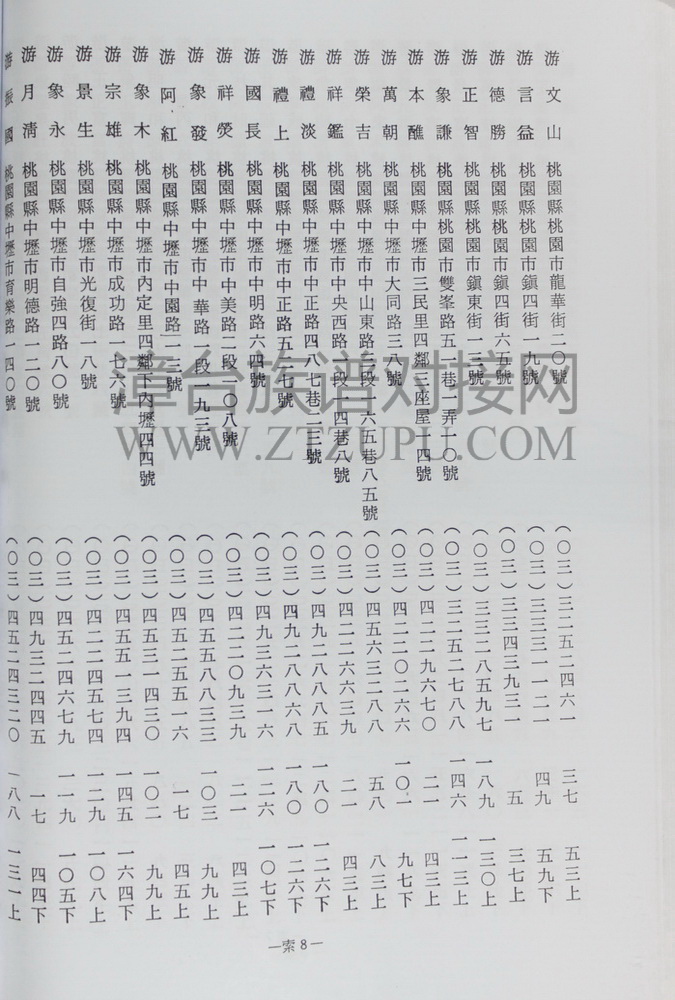 游文山 桃園縣桃園市龍華街二〇號 (〇三)三二五二四六一 三七 五三上
游言益 桃園縣桃園市鎮四街一九號 (〇三)三三三一一二一 四九 五九下
游德勝 桃園縣桃園市鎮四街六五號 (〇三)三三四三九三一 五 三七上
游正智 桃園縣桃園市鎮東街一三號 (〇三)三三二八五九七 一八九 一三〇上
游象謙 桃園縣桃園市雙峯路五一巷一弄一〇號 (〇三)三二五二七八八 一四六 一一三上
游本醮 桃園縣中壢市三民里四鄰三座屋一四號 (〇三)四二二九六七〇 二一 四三上
游萬朝 桃園縣中壢市大同路三八號 (〇三)四二二〇二六六 一〇一 九七下
游榮吉 桃園縣中壢市中山東路二段一六五巷八五號 (〇三)四五六三二八八 五八 八三上
游祥鑑 桃園縣中壢市中央西路一段一四巷八號 (〇三)四二二六六三九 二一 四三上
游禮淡 桃園縣中壢市中正路四八七巷二三號 (〇三)四九二八八八五 一八〇 一二六下
游禮上 桃園縣中壢市中正路五一七號 (〇三)四九二八八六八 一八〇 一二六下
游國長 桃園縣中壢市中明路六四號 (〇三)四九三六三一六 一二六 一〇七下
游祥熒 桃園縣中壢市中美路二段一〇八號 (〇三)四二二〇九三九 二一 四三上
游象發 桃園縣中壢市中華路一段一九三號 (〇三)四五五八八三三 一〇三 九九上
游阿紅 桃園縣中壢市中園路一三號 (〇三)四五二五五一六 一七 四五上
游象木 桃園縣中壢市內定里四鄰下內壢四四號 (〇三)四五三一四三〇 一〇二 九九上
游宗雄 桃園縣中壢市成功路一七六號 (〇三)四五五一三九四 一四五 一六四下
游景生 桃園縣中壢市光復街一八號 (〇三)四二二四五七四 一二九 一〇八上
游象永 桃園縣中壢市自強四路八〇號 (〇三)四五二四六七九 一一九 一〇五下
游月清 桃園縣中壢市明德路一二〇號 (〇三)四九三二四四五 一七 四四下
游振國 桃園縣中壢市育樂路一四〇號 (〇三)四五二四三二〇 一八八 一三一上
—索8—
漳台族谱对接网
WWW.ZTZUPU.COM